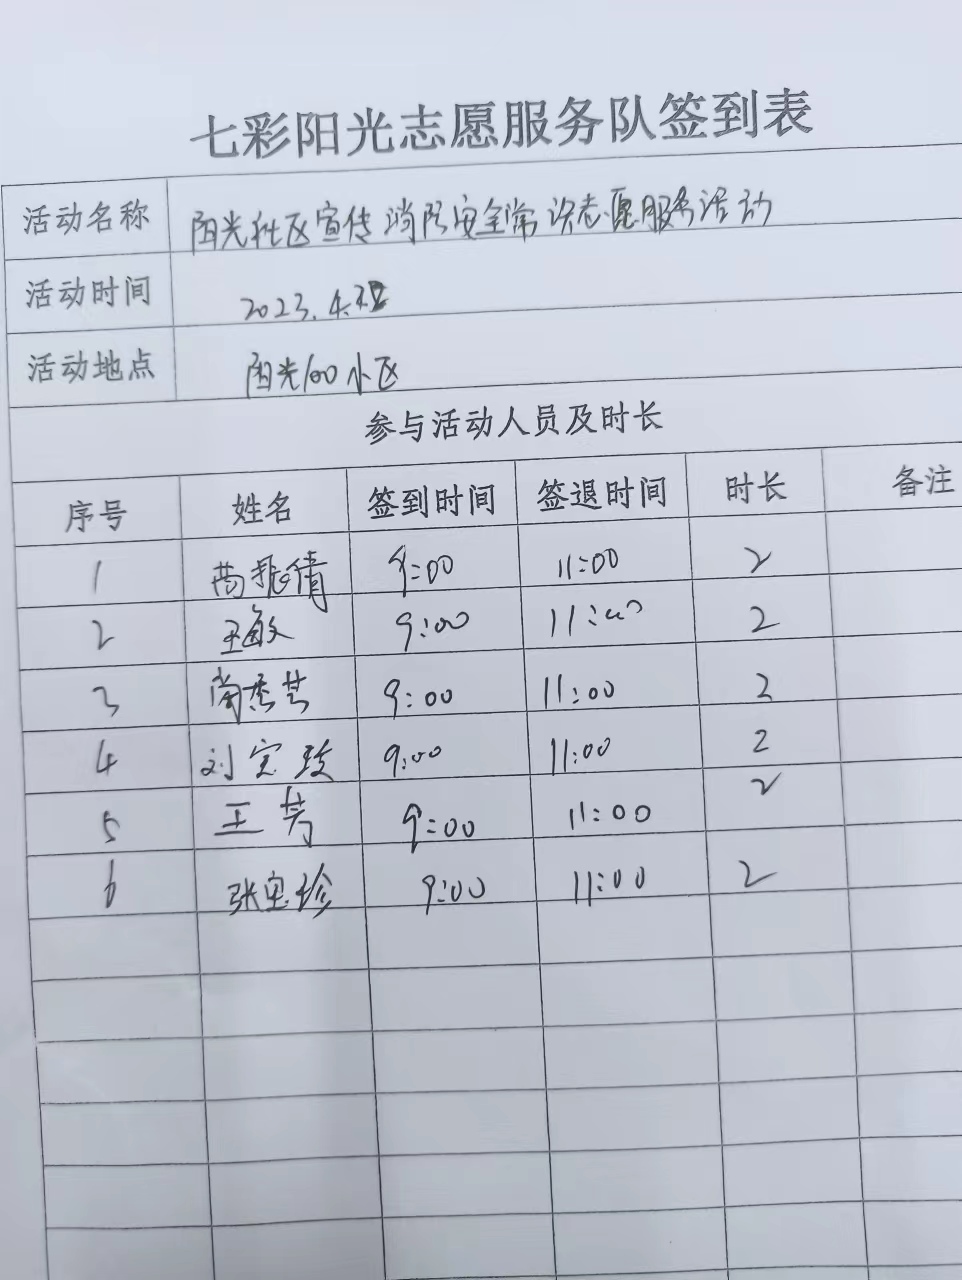 七彩阳光志愿服务队签到表
活动名称 阳光社区宣传消防安全常识志愿服务活动
活动时间 2023.4.
活动地点 阳光100小区
参与活动人员及时长
序号 姓名 签到时间 签退时间 时长 备注
1 倩 9:00 11:00 2
2 王敏 9:00 11:00 2
3 尚秀芸 9:00 11:00 2
4 刘宝玫 9:00 11:00 2
5 王芳 9:00 11:00 2
6 张宝珍 9:00 11:00 2